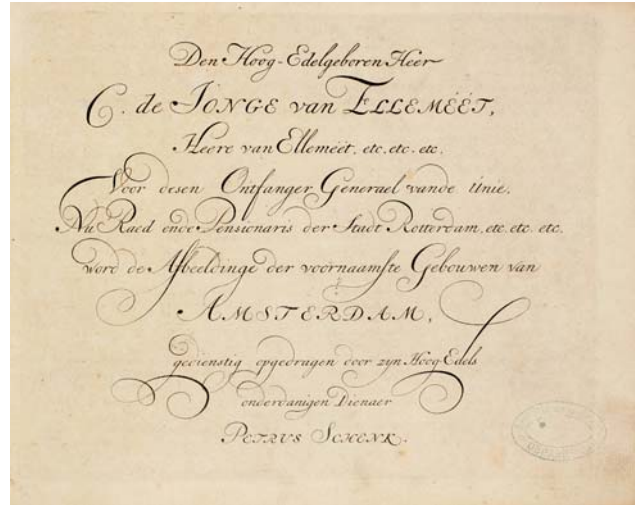 Den Hoog-Edelgeboren Heer
C. de JONGE van ELLEMÉÉT,
Heere van Elleméét, etc. etc. etc.
Voor desen Ontfanger Generael vande Unie,
Nu Raed ende Pensionaris der Stadt Rotterdam, etc. etc. etc.
word de Afbeeldinge der voornaamste Gebouwen van
AMSTERDAM,
gedienstig opgedragen door zyn Hoog Edels
onderdanigen Dienaer
PETRUS SCHENK.